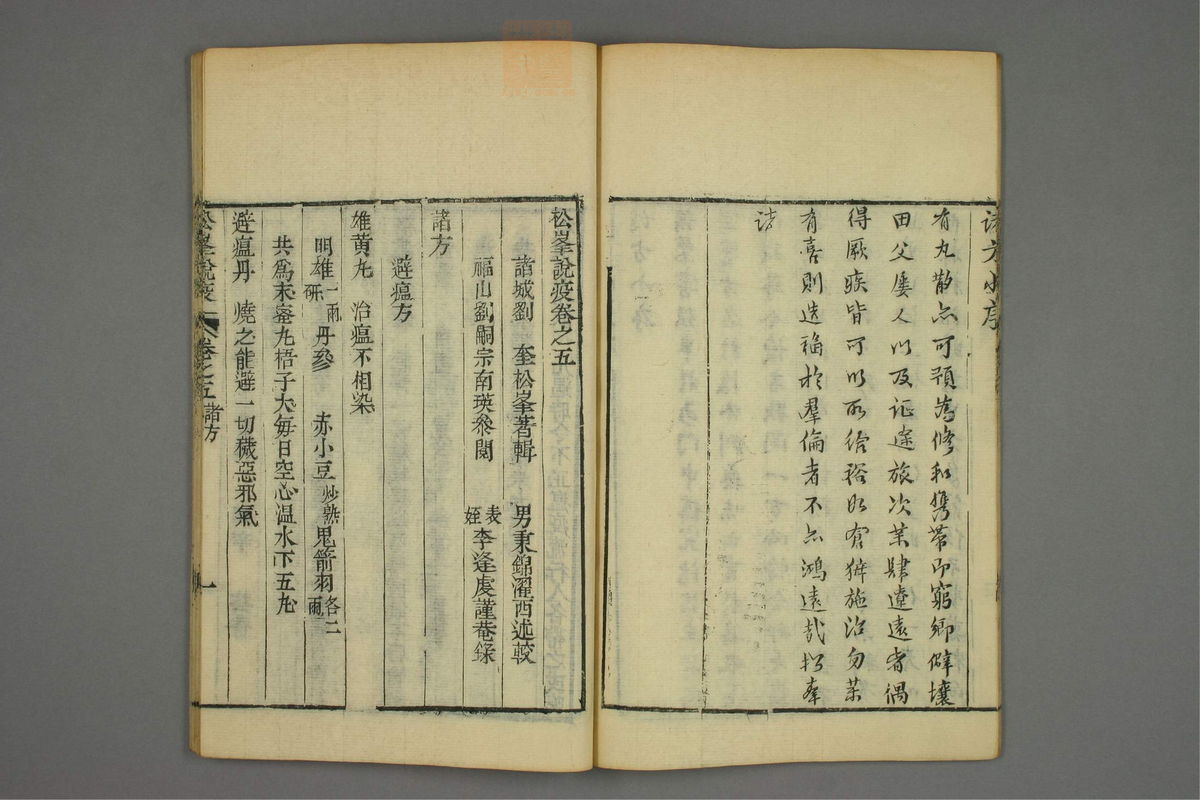 諸方小序
有丸散亦可預為修和攜帶即窮鄉僻壤
田父屢人以及征途旅次業肆遼遠者偶
得厥疾皆可以取給裕如有獬施治勿藥
有喜則造福於羣倫者不亦鴻遠哉松峯
諸
松峯說疫卷之五
諸城劉 奎松峯著輯 男秉錦濯西述較
福山劉嗣宗南瑛叅閱 表姪李逢虔謹菴錄
諸方
避瘟方
雄黃丸 治瘟不相染
明雄一兩研 丹參 赤小豆炒熟 鬼箭羽各二兩
共爲末蜜丸梧子大每日空心溫水下五丸
避瘟丹 燒之能避一切穢惡邪氣
松峯說疫 卷之五 諸方 一